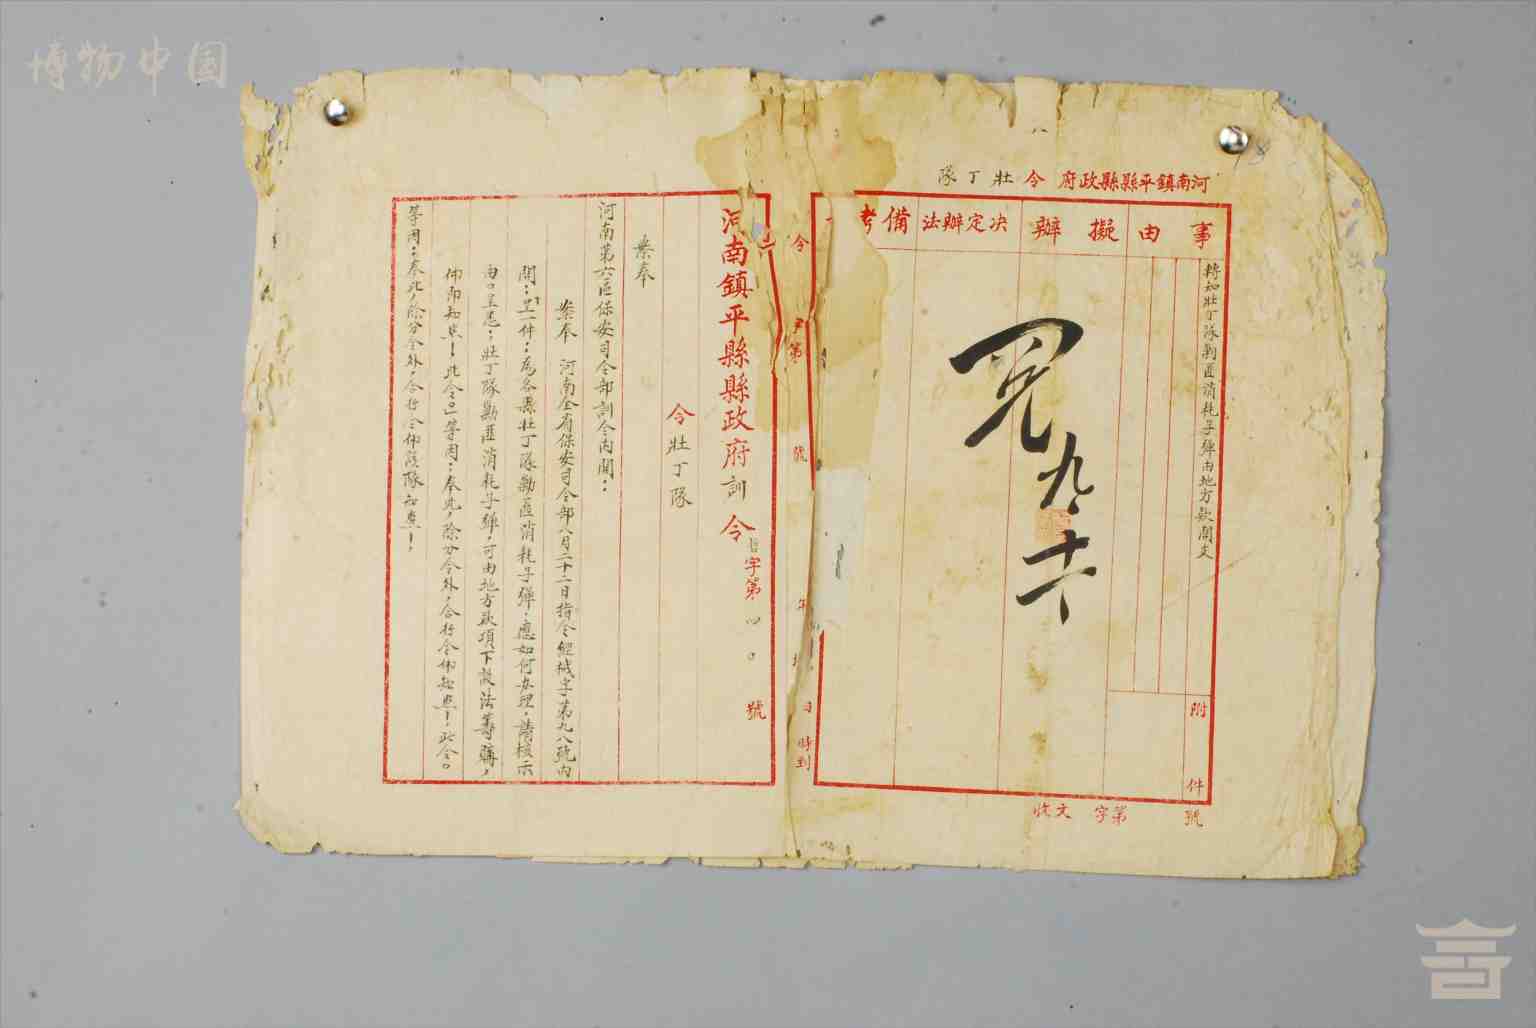 博物中国
河南鎮平縣縣政府令壯丁隊
事由
擬辦
決定辦法
備考
轉知壯丁隊剿匪消耗子彈由地方款開支
附件
收文 字第 號
閱 九、十六
令 字第 號 年 月 日 時到
河南鎮平縣縣政府訓令 字第 號
令壯丁隊
案奉
河南第六區保安司令部訓令內開：
案奉 河南全省保安司令部八月二十二日指令 字第九八號內
開：呈一件：為各縣壯丁隊勦匪消耗子彈，應如何办理，請核示
由。呈悉，壯丁隊勦匪消耗子彈，可由地方款項下設法籌購，
仰即知照！此令。等因：奉此，除分令外，合行令仰知照！此令。
等因：奉此，除分令外，合行令仰該隊知照！，